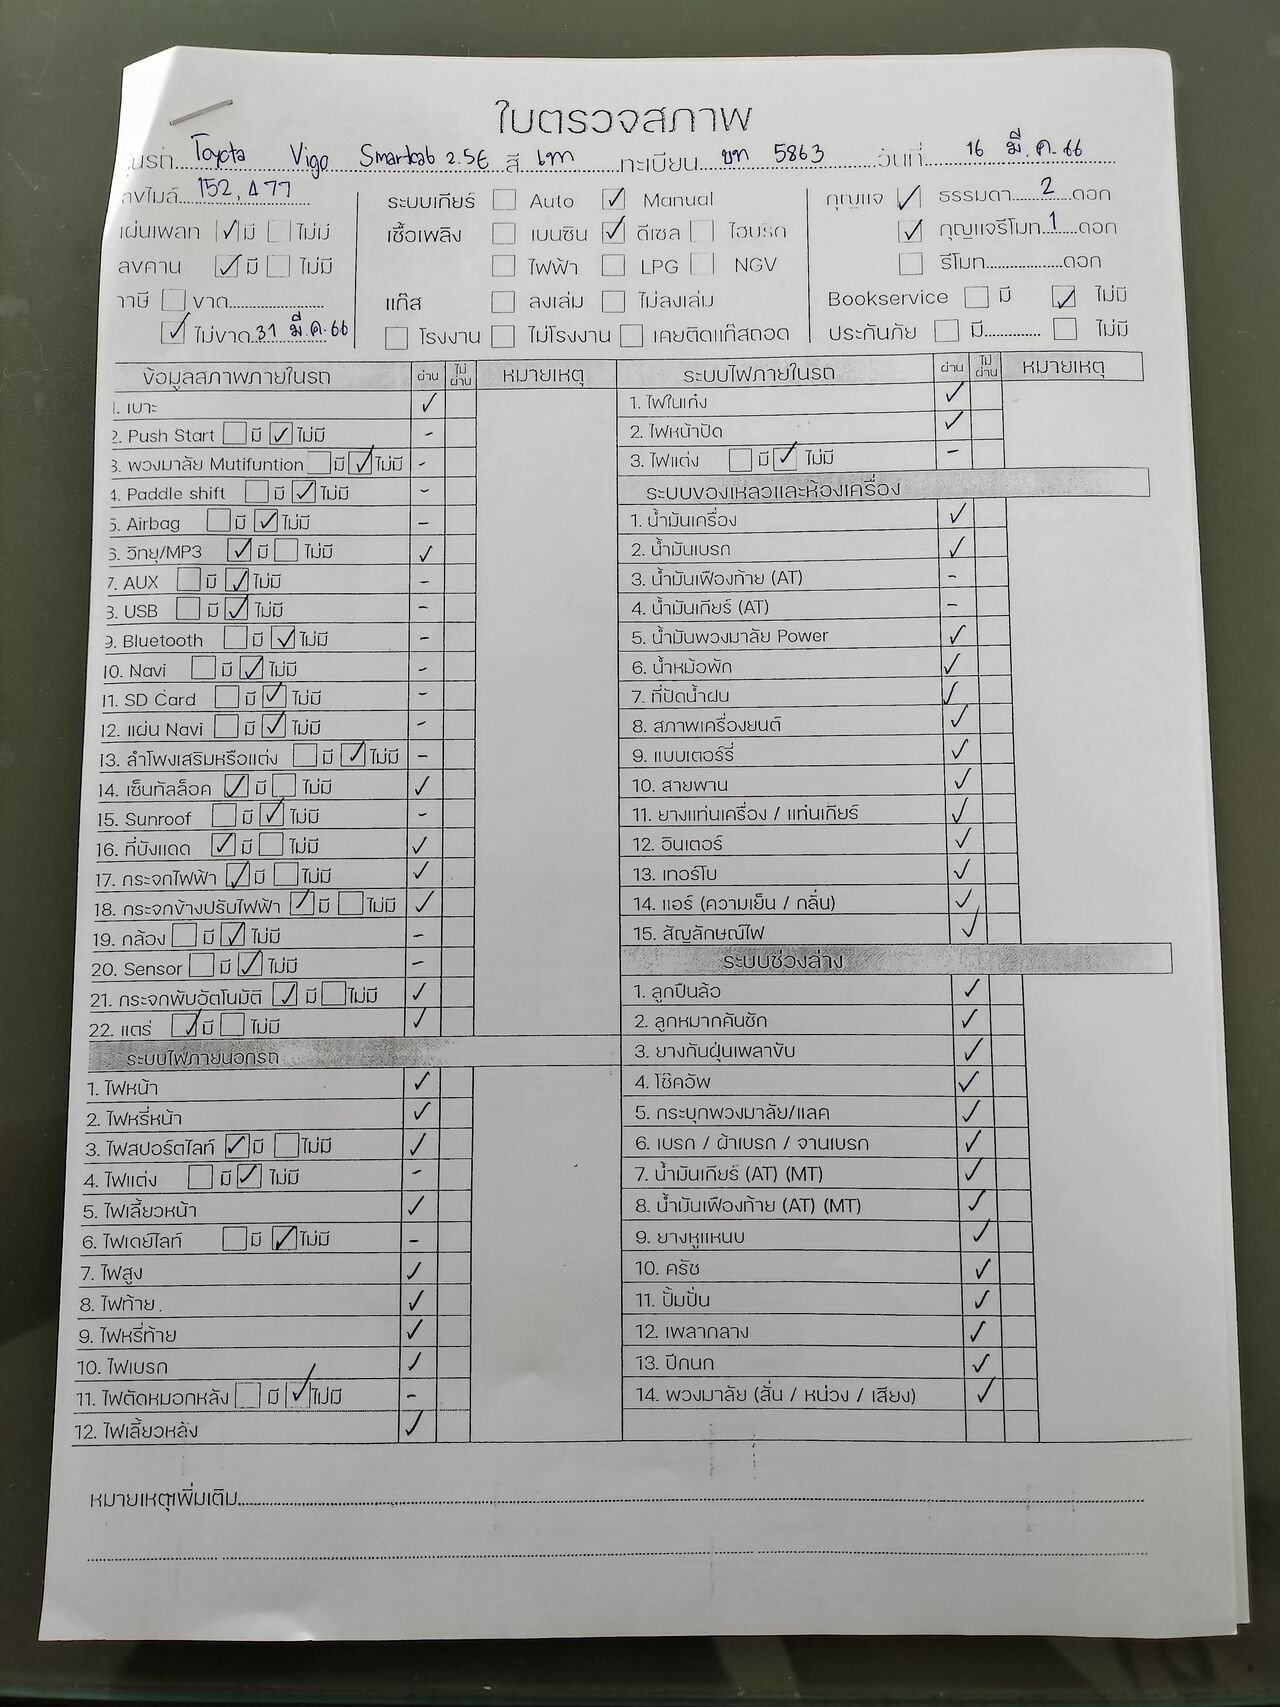 ใบตรวจสภาพ
รุ่นรถ Toyota Vigo Smartcab 2.5E สี เทา ทะเบียน บท 5863 วันที่ 16 มี.ค.66
เลขไมล์ 152,477
แผ่นเพลท ☑ มี ☐ ไม่มี
ลงคาน ☑ มี ☐ ไม่มี
ภาษี ☐ ขาด
☑ ไม่ขาด 31 มี.ค.66
ระบบเกียร์ ☐ Auto ☑ Manual
เชื้อเพลิง ☐ เบนซิน ☑ ดีเซล ☐ ไฮบริด
☐ ไฟฟ้า ☐ LPG ☐ NGV
แก๊ส ☐ ลงเล่ม ☐ ไม่ลงเล่ม
☐ โรงงาน ☐ ไม่โรงงาน ☐ เคยติดแก๊สถอด
กุญแจ ☑ ธรรมดา 2 ดอก
☑ กุญแจรีโมท 1 ดอก
☐ รีโมท ดอก
Bookservice ☐ มี ☑ ไม่มี
ประกันภัย ☐ มี ☐ ไม่มี
ข้อมูลสภาพภายในรถ ผ่าน ไม่ผ่าน หมายเหตุ
1. เบาะ ✓
2. Push Start ☐ มี ☑ ไม่มี -
3. พวงมาลัย Mutifuntion ☐ มี ☑ ไม่มี -
4. Paddle shift ☐ มี ☑ ไม่มี -
5. Airbag ☐ มี ☑ ไม่มี -
6. วิทยุ/MP3 ☑ มี ☐ ไม่มี ✓
7. AUX ☐ มี ☑ ไม่มี -
8. USB ☐ มี ☑ ไม่มี -
9. Bluetooth ☐ มี ☑ ไม่มี -
10. Navi ☐ มี ☑ ไม่มี -
11. SD Card ☐ มี ☑ ไม่มี -
12. แผ่น Navi ☐ มี ☑ ไม่มี -
13. ลำโพงเสริมหรือแต่ง ☐ มี ☑ ไม่มี -
14. เซ็นทัลล็อค ☑ มี ☐ ไม่มี ✓
15. Sunroof ☐ มี ☑ ไม่มี -
16. ที่บังแดด ☑ มี ☐ ไม่มี ✓
17. กระจกไฟฟ้า ☑ มี ☐ ไม่มี ✓
18. กระจกข้างปรับไฟฟ้า ☑ มี ☐ ไม่มี ✓
19. กล้อง ☐ มี ☑ ไม่มี -
20. Sensor ☐ มี ☑ ไม่มี -
21. กระจกพับอัตโนมัติ ☑ มี ☐ ไม่มี ✓
22. แตร ☑ มี ☐ ไม่มี ✓
ระบบไฟภายนอกรถ
1. ไฟหน้า ✓
2. ไฟหรี่หน้า ✓
3. ไฟสปอร์ตไลท์ ☑ มี ☐ ไม่มี ✓
4. ไฟแต่ง ☐ มี ☑ ไม่มี -
5. ไฟเลี้ยวหน้า ✓
6. ไฟเดย์ไลท์ ☐ มี ☑ ไม่มี -
7. ไฟสูง ✓
8. ไฟท้าย ✓
9. ไฟหรี่ท้าย ✓
10. ไฟเบรก ✓
11. ไฟตัดหมอกหลัง ☐ มี ☑ ไม่มี -
12. ไฟเลี้ยวหลัง ✓
ระบบไฟภายในรถ ผ่าน ไม่ผ่าน หมายเหตุ
1. ไฟในเก๋ง ✓
2. ไฟหน้าปัด ✓
3. ไฟแต่ง ☐ มี ☑ ไม่มี -
ระบบของเหลวและห้องเครื่อง
1. น้ำมันเครื่อง ✓
2. น้ำมันเบรก ✓
3. น้ำมันเฟืองท้าย (AT) -
4. น้ำมันเกียร์ (AT) -
5. น้ำมันพวงมาลัย Power ✓
6. น้ำหม้อพัก ✓
7. ที่ปัดน้ำฝน ✓
8. สภาพเครื่องยนต์ ✓
9. แบบเตอร์รี่ ✓
10. สายพาน ✓
11. ยางแท่นเครื่อง / แท่นเกียร์ ✓
12. อินเตอร์ ✓
13. เทอร์โบ ✓
14. แอร์ (ความเย็น / กลิ่น) ✓
15. สัญลักษณ์ไฟ ✓
ระบบช่วงล่าง
1. ลูกปืนล้อ ✓
2. ลูกหมากคันชัก ✓
3. ยางกันฝุ่นเพลาขับ ✓
4. โช๊คอัพ ✓
5. กระบุกพวงมาลัย/แลค ✓
6. เบรก / ผ้าเบรก / จานเบรก ✓
7. น้ำมันเกียร์ (AT) (MT) ✓
8. น้ำมันเฟืองท้าย (AT) (MT) ✓
9. ยางหูแหนบ ✓
10. ครัช ✓
11. ปั้มปั่น ✓
12. เพลากลาง ✓
13. ปีกนก ✓
14. พวงมาลัย (สั่น / หน่วง / เสียง) ✓
หมายเหตุเพิ่มเติม